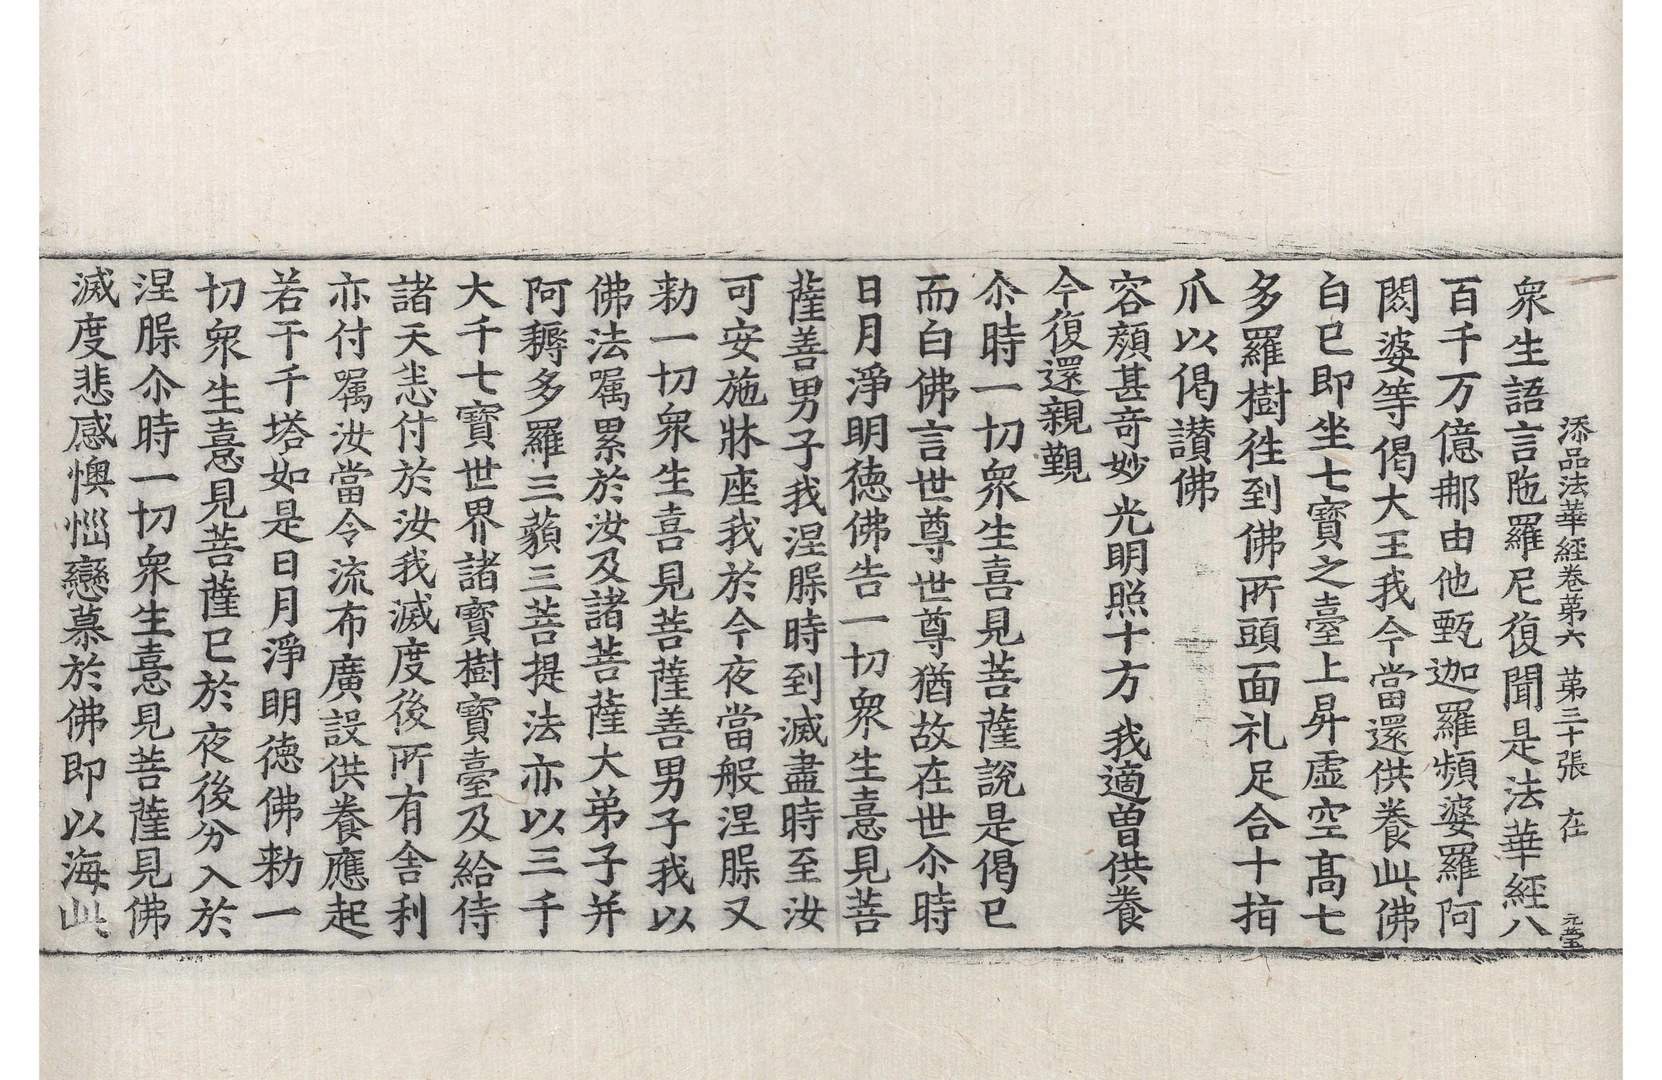 添品法華經卷苐六 苐三十張 在 元瑩
衆生語言陁羅尼復聞是法華經八
百千万億那由他甄迦羅頻婆羅阿
閦婆等偈大王我今當還供養此佛
白已即坐七寶之臺上昇虛空高七
多羅樹往到佛所頭面礼足合十指
爪以偈讃佛
容顏甚奇妙 光明照十方 我適曽供養
今復還親覲
尒時一切衆生喜見菩薩說是偈已
而白佛言世尊世尊猶故在世尒時
日月淨明德佛告一切衆生憙見菩
薩善男子我涅槃時到滅盡時至汝
可安施牀座我於今夜當般涅槃又
勑一切衆生喜見菩薩善男子我以
佛法嘱累於汝及諸菩薩大弟子并
阿耨多羅三藐三菩提法亦以三千
大千七寶世界諸寶樹寶臺及給侍
諸天悉付於汝我滅度後所有舍利
亦付嘱汝當令流布廣設供養應起
若干千塔如是日月淨明德佛勑一
切衆生憙見菩薩已於夜後分入於
涅槃尒時一切衆生憙見菩薩見佛
滅度悲感懊惱戀慕於佛即以海此